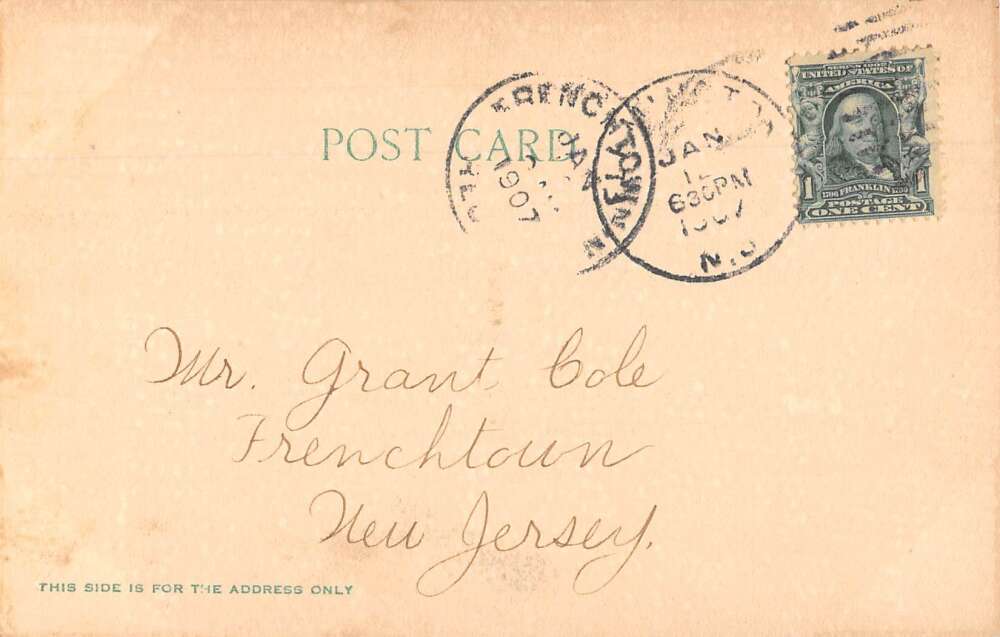 POST CARD
FRENCHTOWN N
JAN
1907
JAN
12
630PM
1907
N.J
SERIES 1902
UNITED STATES OF
AMERICA
1706 FRANKLIN 1790
1 POSTAGE 1
ONE CENT
Mr. Grant Cole
Frenchtown
New Jersey.
THIS SIDE IS FOR THE ADDRESS ONLY